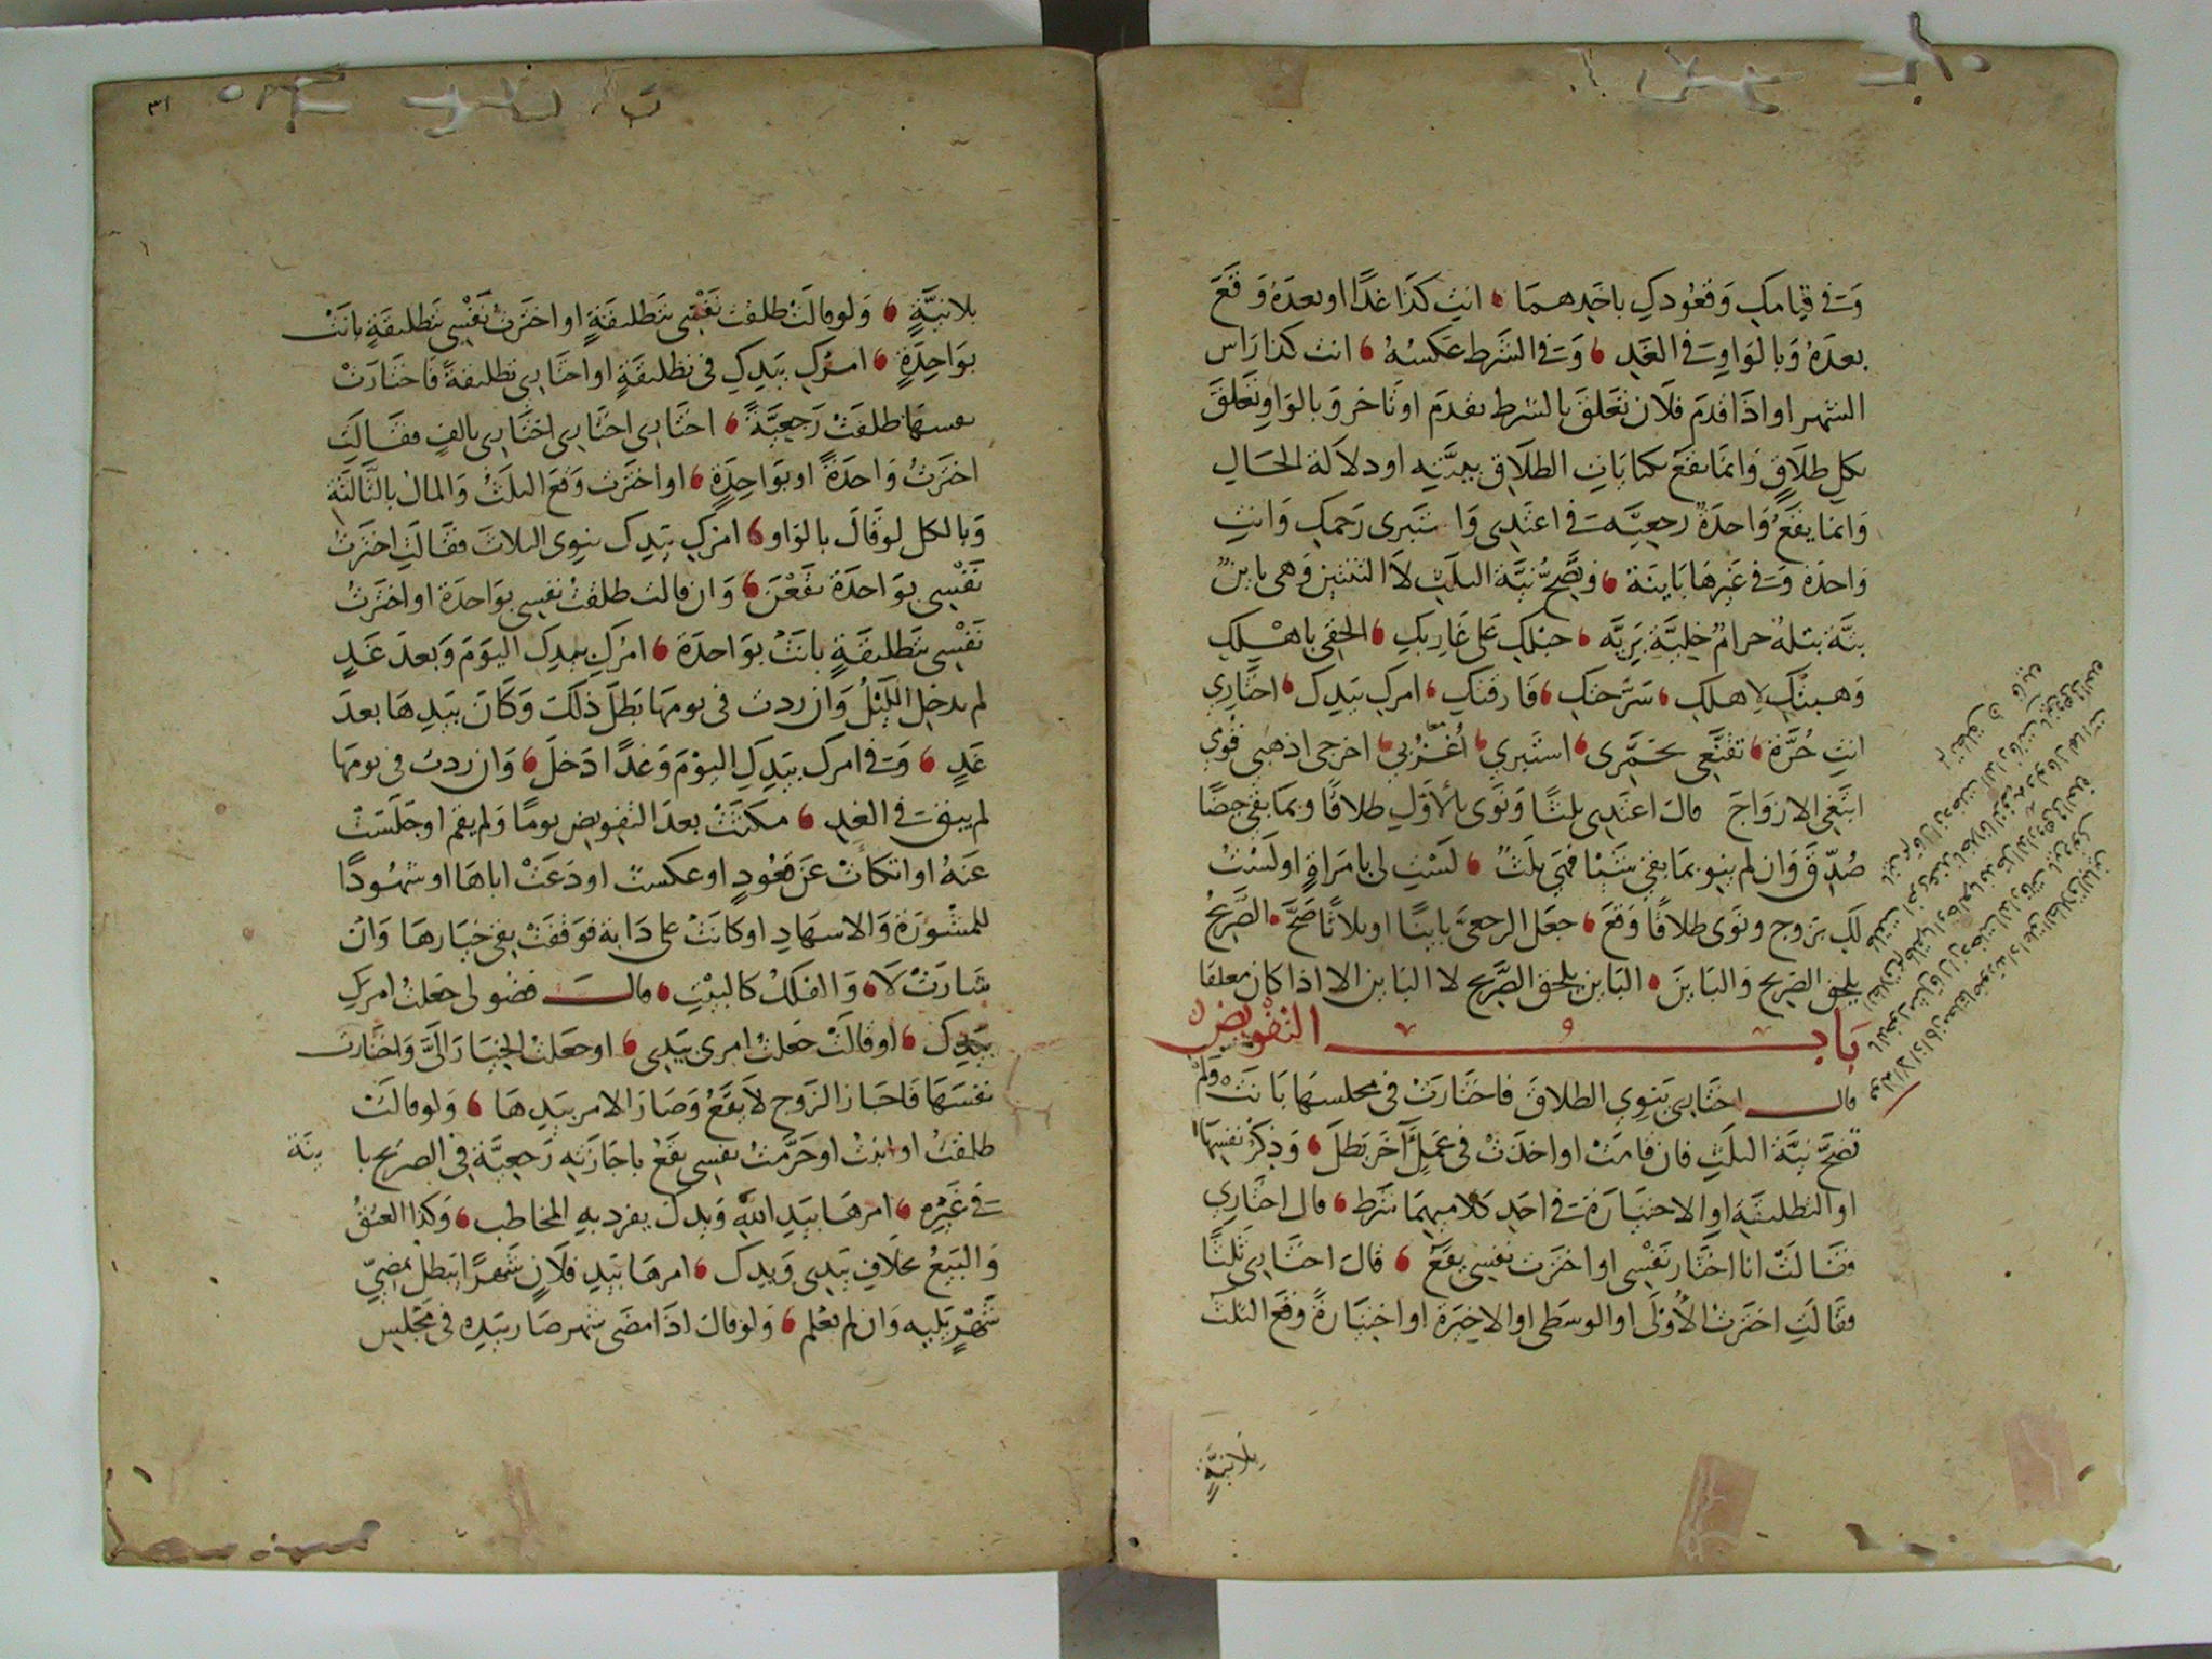 وَفى قيامكِ وَقعُودكِ باحَدِهمَا ، انتِ كذَا غدًا او بعدَهُ وَقعَ
بعدَهُ وَبالوَاوِ فى الغَدِ ، وَفى الشَرط عَكسُهُ ، انت كذا رَاس
الشهر او اذَا قدمَ فلَان تعَلقَ بالشرط تقدمَ او تَاخر وَبالوَاو تعَلقَ
بكل طلَاقٍ وَانمَا يقعَ بكنايَاتِ الطلَاق بنيَّته او دلَالة الحَالِ
وَانمَا يقعُ وَاحدَةٌ رجعيَّة فى اعتَدِى وَاستبرى رَحمكِ وَانتِ
وَاحدَة وَفى غَيرهَا بَاينَة ، وَيصحُّ نيَّة الثلَث لَا الثنتين وَهى باين
بتَّة بتلةٌ حرامٌ خليَّة بَريَّه ، حبلكِ عَلى غَاربكِ ، الحَقى باهْلكِ
وَهبتكِ لاهلكِ ، سَرَّحتكِ ، فَارقتكِ ، امركِ بيَدِك ، اختَارِى
انتِ حُرَّة ، تقنَّعى تخمَّرى ، استبرى ، اُغْرُبى ، اخرجى اذهبى قُومى
ابتَغى الازوَاجَ قالَ اعتَدِى ثلثًا وَنوَى بالأوَّلِ طلاقًا وبمَا بقى حيضًا
صُدّقَ وَان لم ينوِ بمَا بقى شيْئا فهىَ ثلَثٌ ، لسْتِ لى بامرَاةٍ او لَسْتُ
لكِ بزوج ونوَى طلاقًا وَقعَ ، جعَل الرجعىَّ باينًا او ثلاثًا صَحَّ ، الصَّريحُ
يلحق الصَريح وَالبَاينَ ، البَاين يلحق الصَّريح لا البَاين الا اذا كان معلقا
بَاب التَّفْويض
قال اختَارِى ينَوِى الطلاقَ فاختَارَتْ فى مجلسهَا بَانَتْ وَلم
تَصحَّ نيَّة الثلَثِ فان قامَتْ او اخذَتْ فى عَمَلٍ آخَر بَطلَ ، وَذِكرُ نفسِهَا
او التطليقَةِ او الاختيَارَة فى احَدِ كلَاميهمَا شَرط ، قال اختارِى
فقَالَتْ انا اختَار نَفْسِى او اخترت نفسِى يقعَ ، قالَ اختَارى ثَلثًا
فقَالتِ اخترَتْ الأُوْلَى او الوسطَى او الاخيَرة او اختيَارةً وقَعَ الثلث
بِلَانيَّةٍ
٣١
بلَانيَّةٍ ، وَلو قالَتْ طلقت نَفْسِى بتَطليقَةٍ او اخترَتُ نَفْسِى بتَطليقَةٍ بانَتْ
بوَاحِدَةٍ ، امرُكِ بيَدِكِ فى تطليقَةٍ او اختَارِى تطليقةً فَاختَارَتْ
نفسهَا طلقَتْ رَجعيَّةً ، اختَارِى اختَارِى اختَارِى بالفٍ فقَالَت
اخترَتُ وَاحدَةً او بوَاحِدَةٍ ، او اخترَت وَقعَ الثلَثُ وَالمالُ بالثَّالثَةِ
وَبالكل لو قَالَ بالوَاو ، امرَكِ بيَدِك ينوِى الثلاثَ فقَالتِ اخترَتُ
نَفْسِى بوَاحدَة يقَعْنَ ، وَان قالت طلقتُ نفسِى بوَاحدَة او اخترَتُ
نَفْسِى بتَطليقَةٍ بانَتْ بوَاحدَة ، امرُكِ بيَدِكِ اليَوْمَ وَبعدَ غَدٍ
لم يدخل اللَّيْلُ وَان ردت فى يومهَا بَطلَ ذلكَ وَكانَ بيَدِهَا بعدَ
غَدٍ ، وَفى امركِ بيَدِكِ اليوْمَ وَغدًا دَخلَ ، وَان ردت فى يومهَا
لم يبق فى الغدِ ، مكثَتْ بعدَ التفويض يومًا وَلم يقم او جلَسَتْ
عنَهُ او اتكاتْ عَن قعُودٍ او عكست او دَعَتْ اباهَا او شهُودًا
للمشورَة وَالاشهَادِ او كانتْ على دَابة فوَقفَتْ بقى خيَارهَا وَان
سَارَتْ لَا ، وَالفلكُ كالبيْتِ ، قالَ فضولى جعَلتُ امركِ
بيَدِك ، او قالَتْ جعَلتُ امرى بيَدِى ، او جعَلتُ الخيَارَ الىَّ وَاختارت
نفسَهَا فَاجَازَ الزَوج لَا يقَعُ وَصَارَ الامر بيَدِهَا ، وَلو قالَتْ
طلقتُ او ابنتُ او حَرَّمتُ نفسِى يقعُ باجَازَته رَجعيَّة فى الصريح با ينَة
فى غَيْرِه ، امرهَا بيَدِ اللهِ وَيدك يفرد بهِ المخاطب ، وَكذا العتقُ
وَالبَيعُ بخلَافِ بيَدِى وَيدِك ، امرهَا بيَدِ فلَانٍ شَهرًا يَبطل بمضِىّ
شَهْرٍ يليه وَان لم تعْلم ، وَلو قالَ اذَا مضَى شهر صَار بيَدِه فى مَجْلِس